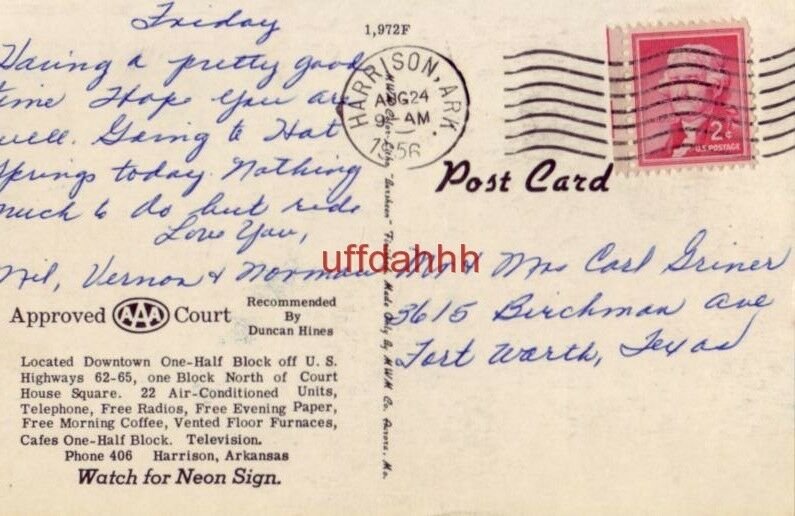 Friday
Having a pretty good
time Hope you are
well. Going to Hot
Springs today. Nothing
much to do but ride
Love You,
Mil, Vernon & Norman
Approved AAA Court
Recommended
By
Duncan Hines
Located Downtown One-Half Block off U. S.
Highways 62-65, one Block North of Court
House Square. 22 Air-Conditioned Units,
Telephone, Free Radios, Free Evening Paper,
Free Morning Coffee, Vented Floor Furnaces,
Cafes One-Half Block. Television.
Phone 406 Harrison, Arkansas
Watch for Neon Sign.
1,972F
HARRISON, ARK
AUG 24
9 AM
1956
2¢
U.S. POSTAGE
Post Card
Made Only By MWM Co. Aurora, Mo.
uffdahhh
Mr & Mrs Carl Griner
3615 Birchman Ave
Fort Worth, Texas